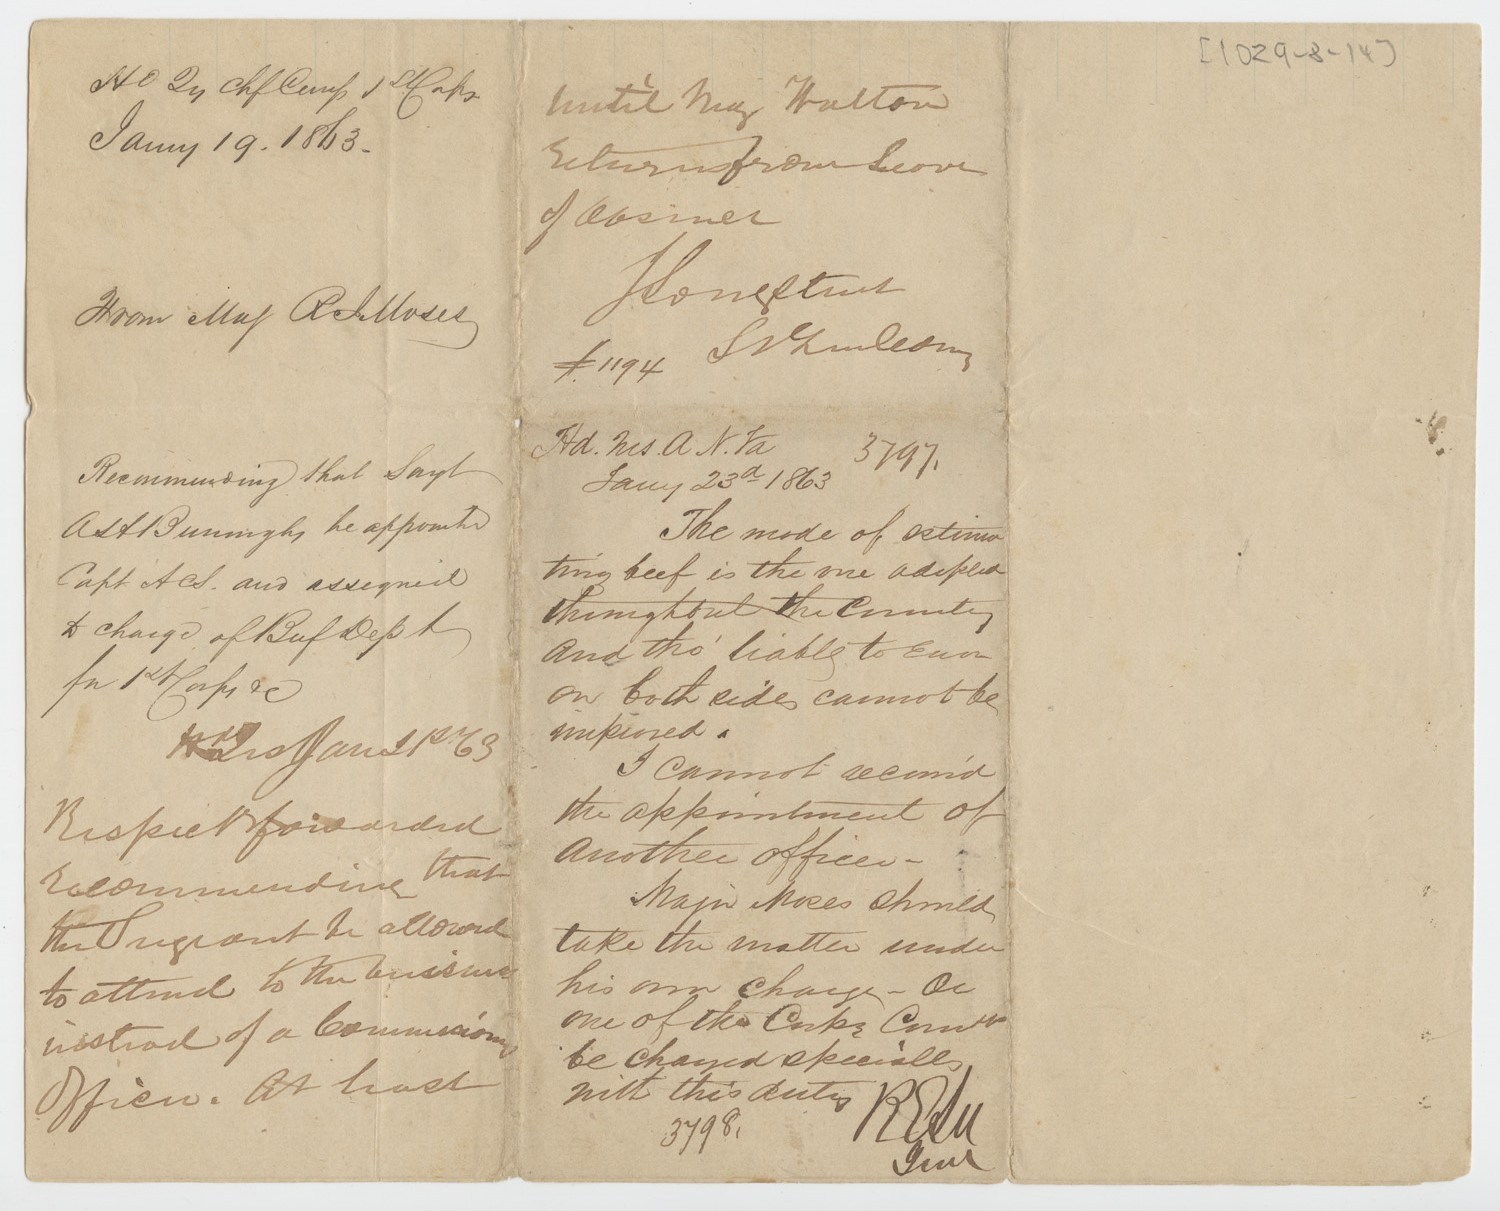 Hd Qr Chf Comy 1st Corps
Jany 19. 1863.
From Maj R J Moses
Recommending that Sergt
A S H Burroughs be appointed
Capt A C S. and assigned
to charge of Beef Dept
for 1st Corps &c
Hd Qrs Jan 21st 63
Respect forwarded
recommending that
the Sergeant be allowed
to attend to the business
instead of a Commission
Officer. At least
until Maj Walton
returns from Leave
of Absence
J Longstreet
Lt Genl Comg
#. 1194
Hd. Qrs. A N. Va
3797.
Jany 23d 1863
The mode of estima
ting beef is the one adopted
throughout the Country
and tho' liable to error
on both sides cannot be
improved.
I cannot recomd
the appointment of
another officer -
Major Moses should
take the matter under
his own charge - Or
one of the Corps
be charged specially
with this duty
R E Lee
Genl
3798.
[1029-8-14]